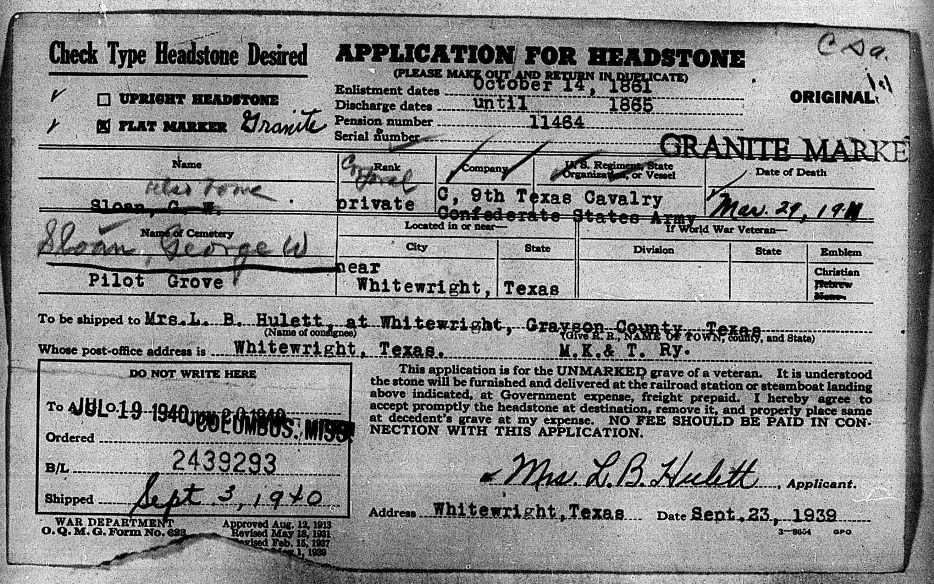 C.S.A.
Check Type Headstone Desired
APPLICATION FOR HEADSTONE
(PLEASE MAKE OUT AND RETURN IN DUPLICATE)
☐ UPRIGHT HEADSTONE
☒ FLAT MARKER Granite
Enlistment dates October 14, 1861
Discharge dates until 1865
Pension number 11464
Serial number
ORIGINAL
GRANITE MARKE
Name
Rank
Company
U. S. Regiment, State Organization, or Vessel
Date of Death
Corporal
Sloan, G. W.
private
C, 9th Texas Cavalry
Confederate States Army
Mar. 29, 19
Name of Cemetery
Located in or near—
If World War Veteran—
Sloan, George W
City
State
Division
State
Emblem
Pilot Grove
near
Whitewright, Texas
Christian
Hebrew
None
To be shipped to Mrs. L. B. Hulett, at Whitewright, Grayson County, Texas
(Name of consignee)
(Give R. R., NAME OF TOWN, county, and State)
Whose post-office address is Whitewright, Texas. M.K.& T. Ry.
DO NOT WRITE HERE
To A.G.O. JUL 19 1940
COLUMBUS, MISS
Ordered
B/L 2439293
Shipped Sept 3, 1940
This application is for the UNMARKED grave of a veteran. It is understood
the stone will be furnished and delivered at the railroad station or steamboat landing
above indicated, at Government expense, freight prepaid. I hereby agree to
accept promptly the headstone at destination, remove it, and properly place same
at decedent's grave at my expense. NO FEE SHOULD BE PAID IN CON-
NECTION WITH THIS APPLICATION.
Mrs. L. B. Hulett, Applicant.
Address Whitewright, Texas Date Sept. 23, 1939
WAR DEPARTMENT
O. Q. M. G. Form No. 623
Approved Aug. 12, 1913
Revised May 18, 1931
Revised Feb. 15, 1937
1, 1939
3—8654 GPO